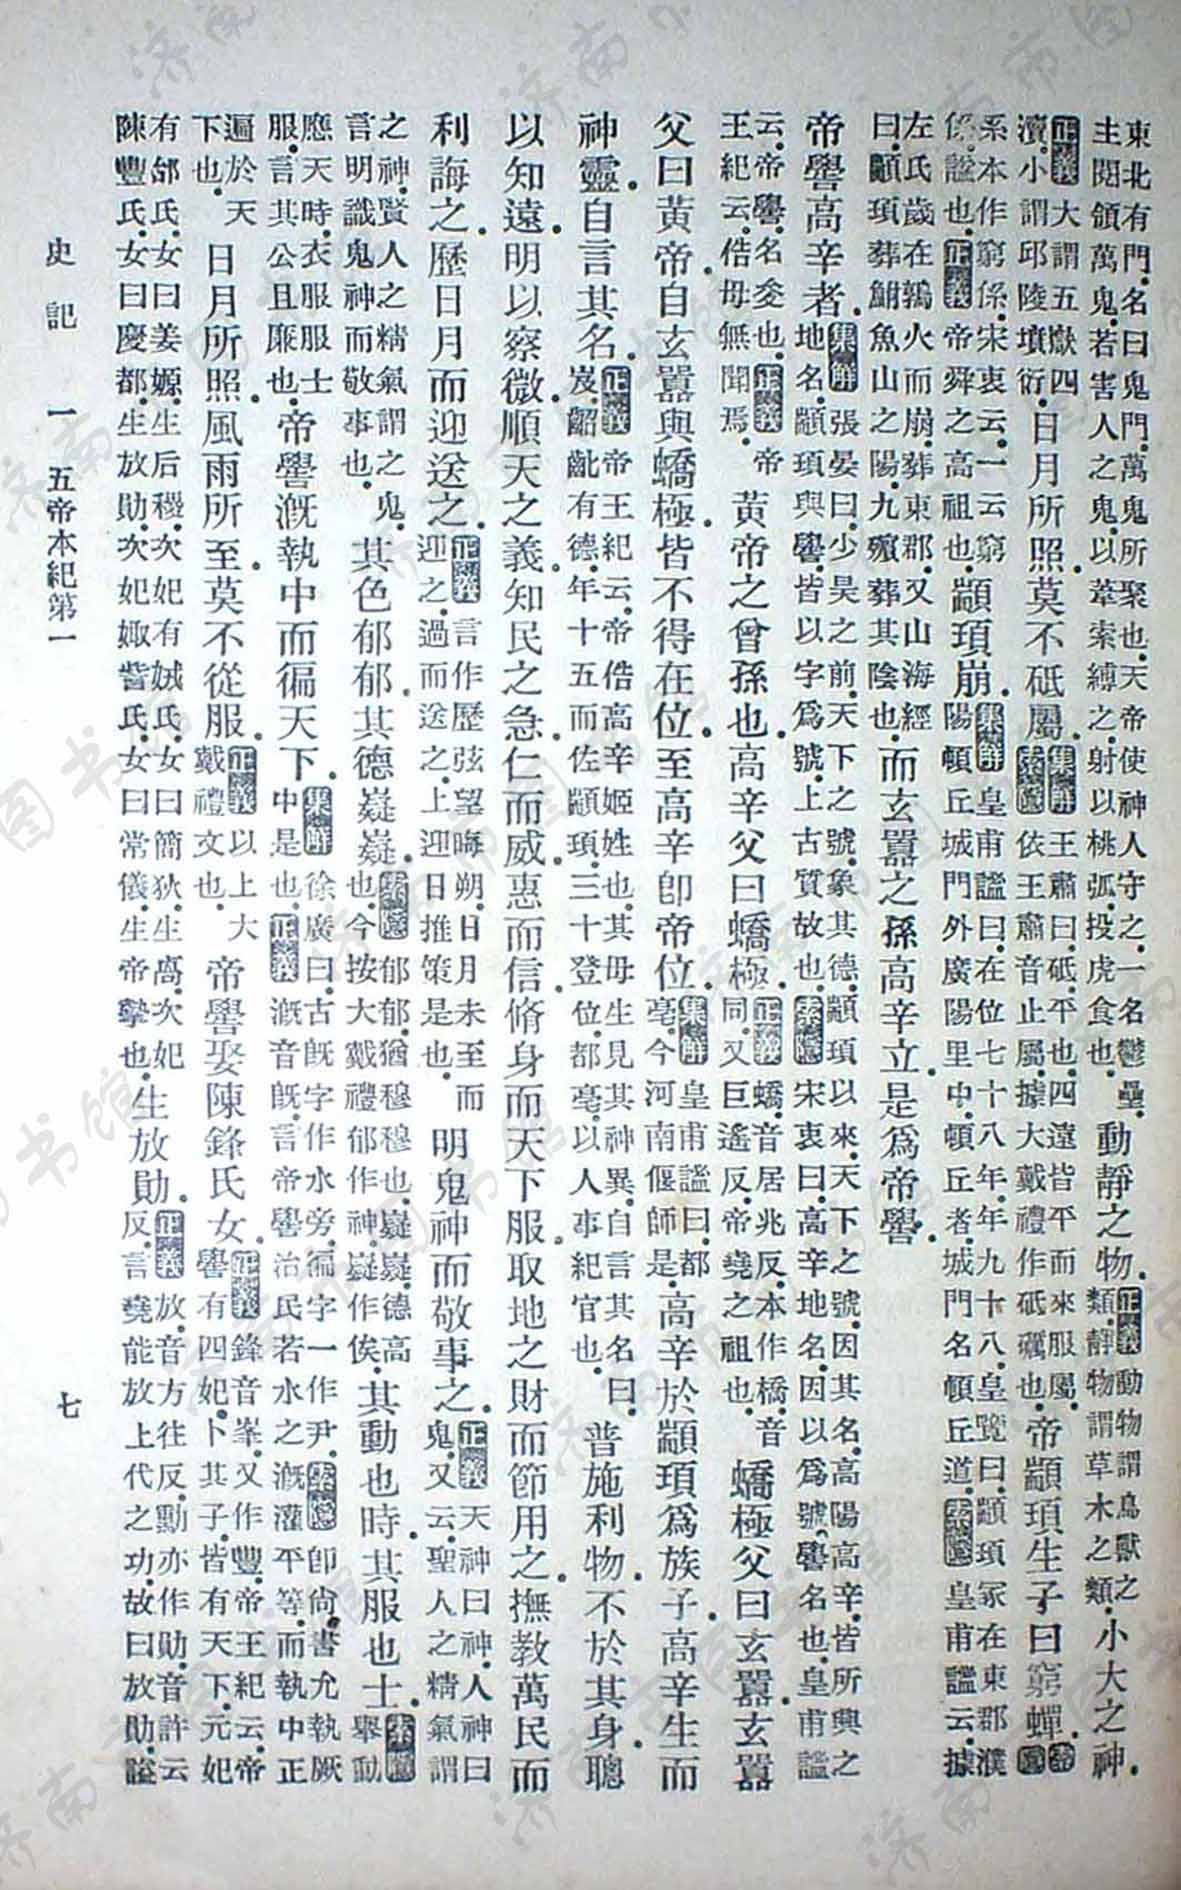 東北有門。名曰鬼門。萬鬼所聚也。天帝使神人守之。一名鬱壘。主閱領萬鬼。若害人之鬼。以葦索縛之。射以桃弧。投虎食也。動靜之物。正義動物謂鳥獸之類。靜物謂草木之類。小大之神。
正義大謂五嶽四瀆。小謂邱陵墳衍。日月所照。莫不砥屬。集解王肅曰。砥。平也。四遠皆平而來服屬。索隱依王肅音止屬。據大戴禮作砥礪也。帝顓頊生子曰窮蟬。索隱
系本作窮係。宋衷云。一云窮係。諡也。正義帝舜之高祖也。顓頊崩。集解皇甫謐曰。在位七十八年。年九十八。皇覽曰。顓頊冢在東郡濮陽頓丘城門外廣陽里中。頓丘者。城門名頓丘道。索隱皇甫謐云。據
左氏歲在鶉火而崩。葬東郡。又山海經曰。顓頊葬鮒魚山之陽。九嬪葬其陰也。而玄囂之孫高辛立。是爲帝嚳。
帝嚳高辛者。集解張晏曰。少昊之前。天下之號。象其德。顓頊以來。天下之號。因其名。高陽高辛。皆所興之地名。顓頊與嚳。皆以字爲號。上古質故也。索隱宋衷曰。高辛地名。因以爲號。嚳名也。皇甫謐
云。帝嚳名夋也。正義帝王紀云。俈母無聞焉。黃帝之曾孫也。高辛父曰蟜極。正義蟜音居兆反。本作橋。音同。又巨遙反。帝堯之祖也。蟜極父曰玄囂。玄囂
父曰黃帝。自玄囂與蟜極。皆不得在位。至高辛卽帝位。集解皇甫謐曰。都亳。今河南偃師是。高辛於顓頊爲族子。高辛生而
神靈。自言其名。正義帝王紀云。帝俈高辛姬姓也。其母生見其神異。自言其名曰岌。齠齔有德。年十五而佐顓頊。三十登位。都亳。以人事紀官也。普施利物。不於其身。聰
以知遠。明以察微。順天之義。知民之急。仁而威。惠而信。脩身而天下服。取地之財而節用之。撫教萬民而
利誨之。歷日月而迎送之。正義言作歷弦望晦朔。日月未至而迎之。過而送之。上迎日推策是也。明鬼神而敬事之。正義天神曰神。人神曰鬼。又云。聖人之精氣謂
之神。賢人之精氣謂之鬼。言明識鬼神而敬事也。其色郁郁。其德嶷嶷。索隱郁郁。猶穆穆也。嶷嶷。德高也。今按大戴禮郁作神。嶷作俟。其動也時。其服也士。索隱舉動
應天時。衣服服士服。言其公且廉也。帝嚳溉執中而徧天下。集解徐廣曰。古旣字作水旁。徧字一作尹。索隱卽尚書允執厥中是也。正義溉音旣。言帝嚳治民。若水之溉灌平等。而執中正
遍於天下也。日月所照。風雨所至。莫不從服。正義以上大戴禮文也。帝嚳娶陳鋒氏女。正義鋒音峯。又作豐。帝王紀云。帝嚳有四妃。卜其子。皆有天下。元妃
有邰氏。女曰姜嫄。生后稷。次妃有娀氏。女曰簡狄。生卨。次妃陳豐氏。女曰慶都。生放勛。次妃娵訾氏。女曰常儀。生帝摯也。生放勛。正義放音方往反。勳亦作勛。音許云反。言堯能放上代之功。故曰放勛。謚
史記 一 五帝本紀第一 七